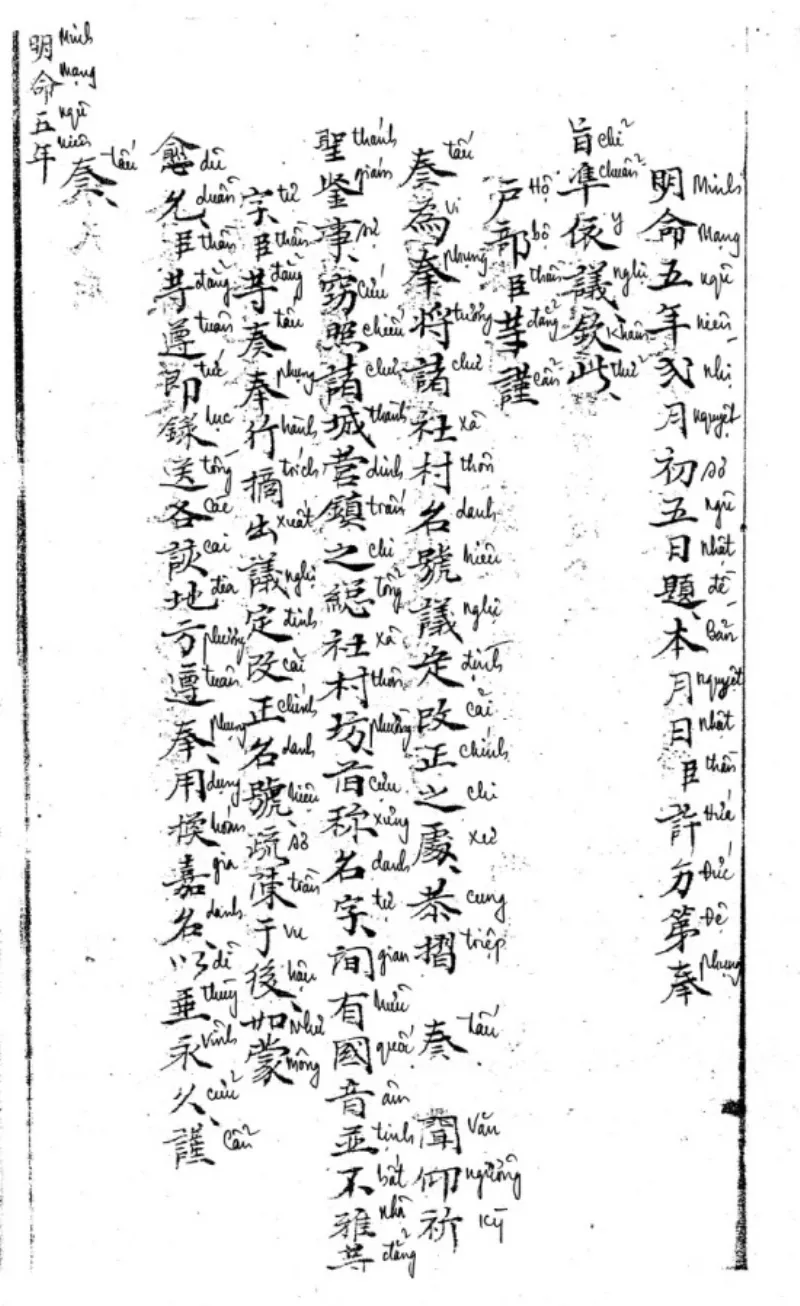 明命五年弍月初五日題、本月日臣許第奉
Minh Mạng ngũ niên nhị nguyệt sơ ngũ nhật đề Bản nguyệt nhật thần Hứa Đức Đệ phụng
旨準依議欽此、
chỉ chuẩn y nghị Khâm thử
户部臣等謹
Hộ bộ thần đẳng cẩn
奏為奉將諸社村名號議定改正之處、恭摺 奏 聞仰祈
tấu vi phụng tương chư xã thôn danh hiệu nghị định cải chính chi xứ cung triệp tấu Văn ngưỡng kỳ
聖鍳事、窃照諸城营鎮之縂社村坊、旧称名字、间有國音並不雅等
thánh giám sự cứu chiếu chư thành dinh trấn chi tổng xã thôn phường cựu xưng danh tự gian hữu quốc âm tịnh bất nhã đẳng
字、臣等奏奉行摘出議定改正名號、疏陳于後、如蒙
tự thần đẳng tấu phụng hành trích xuất nghị định cải chính danh hiệu sơ trần vu hậu Như mông
愈允、臣等遵即錄送各該地方遵奉、用换嘉名、以垂永久、謹
dũ duẫn thần đẳng tuân tức lục tống các cai địa phương tuân phụng dụng hoán gia danh dĩ thùy vĩnh cửu Cẩn
奏、
tấu
明命五年
Minh Mạng ngũ niên